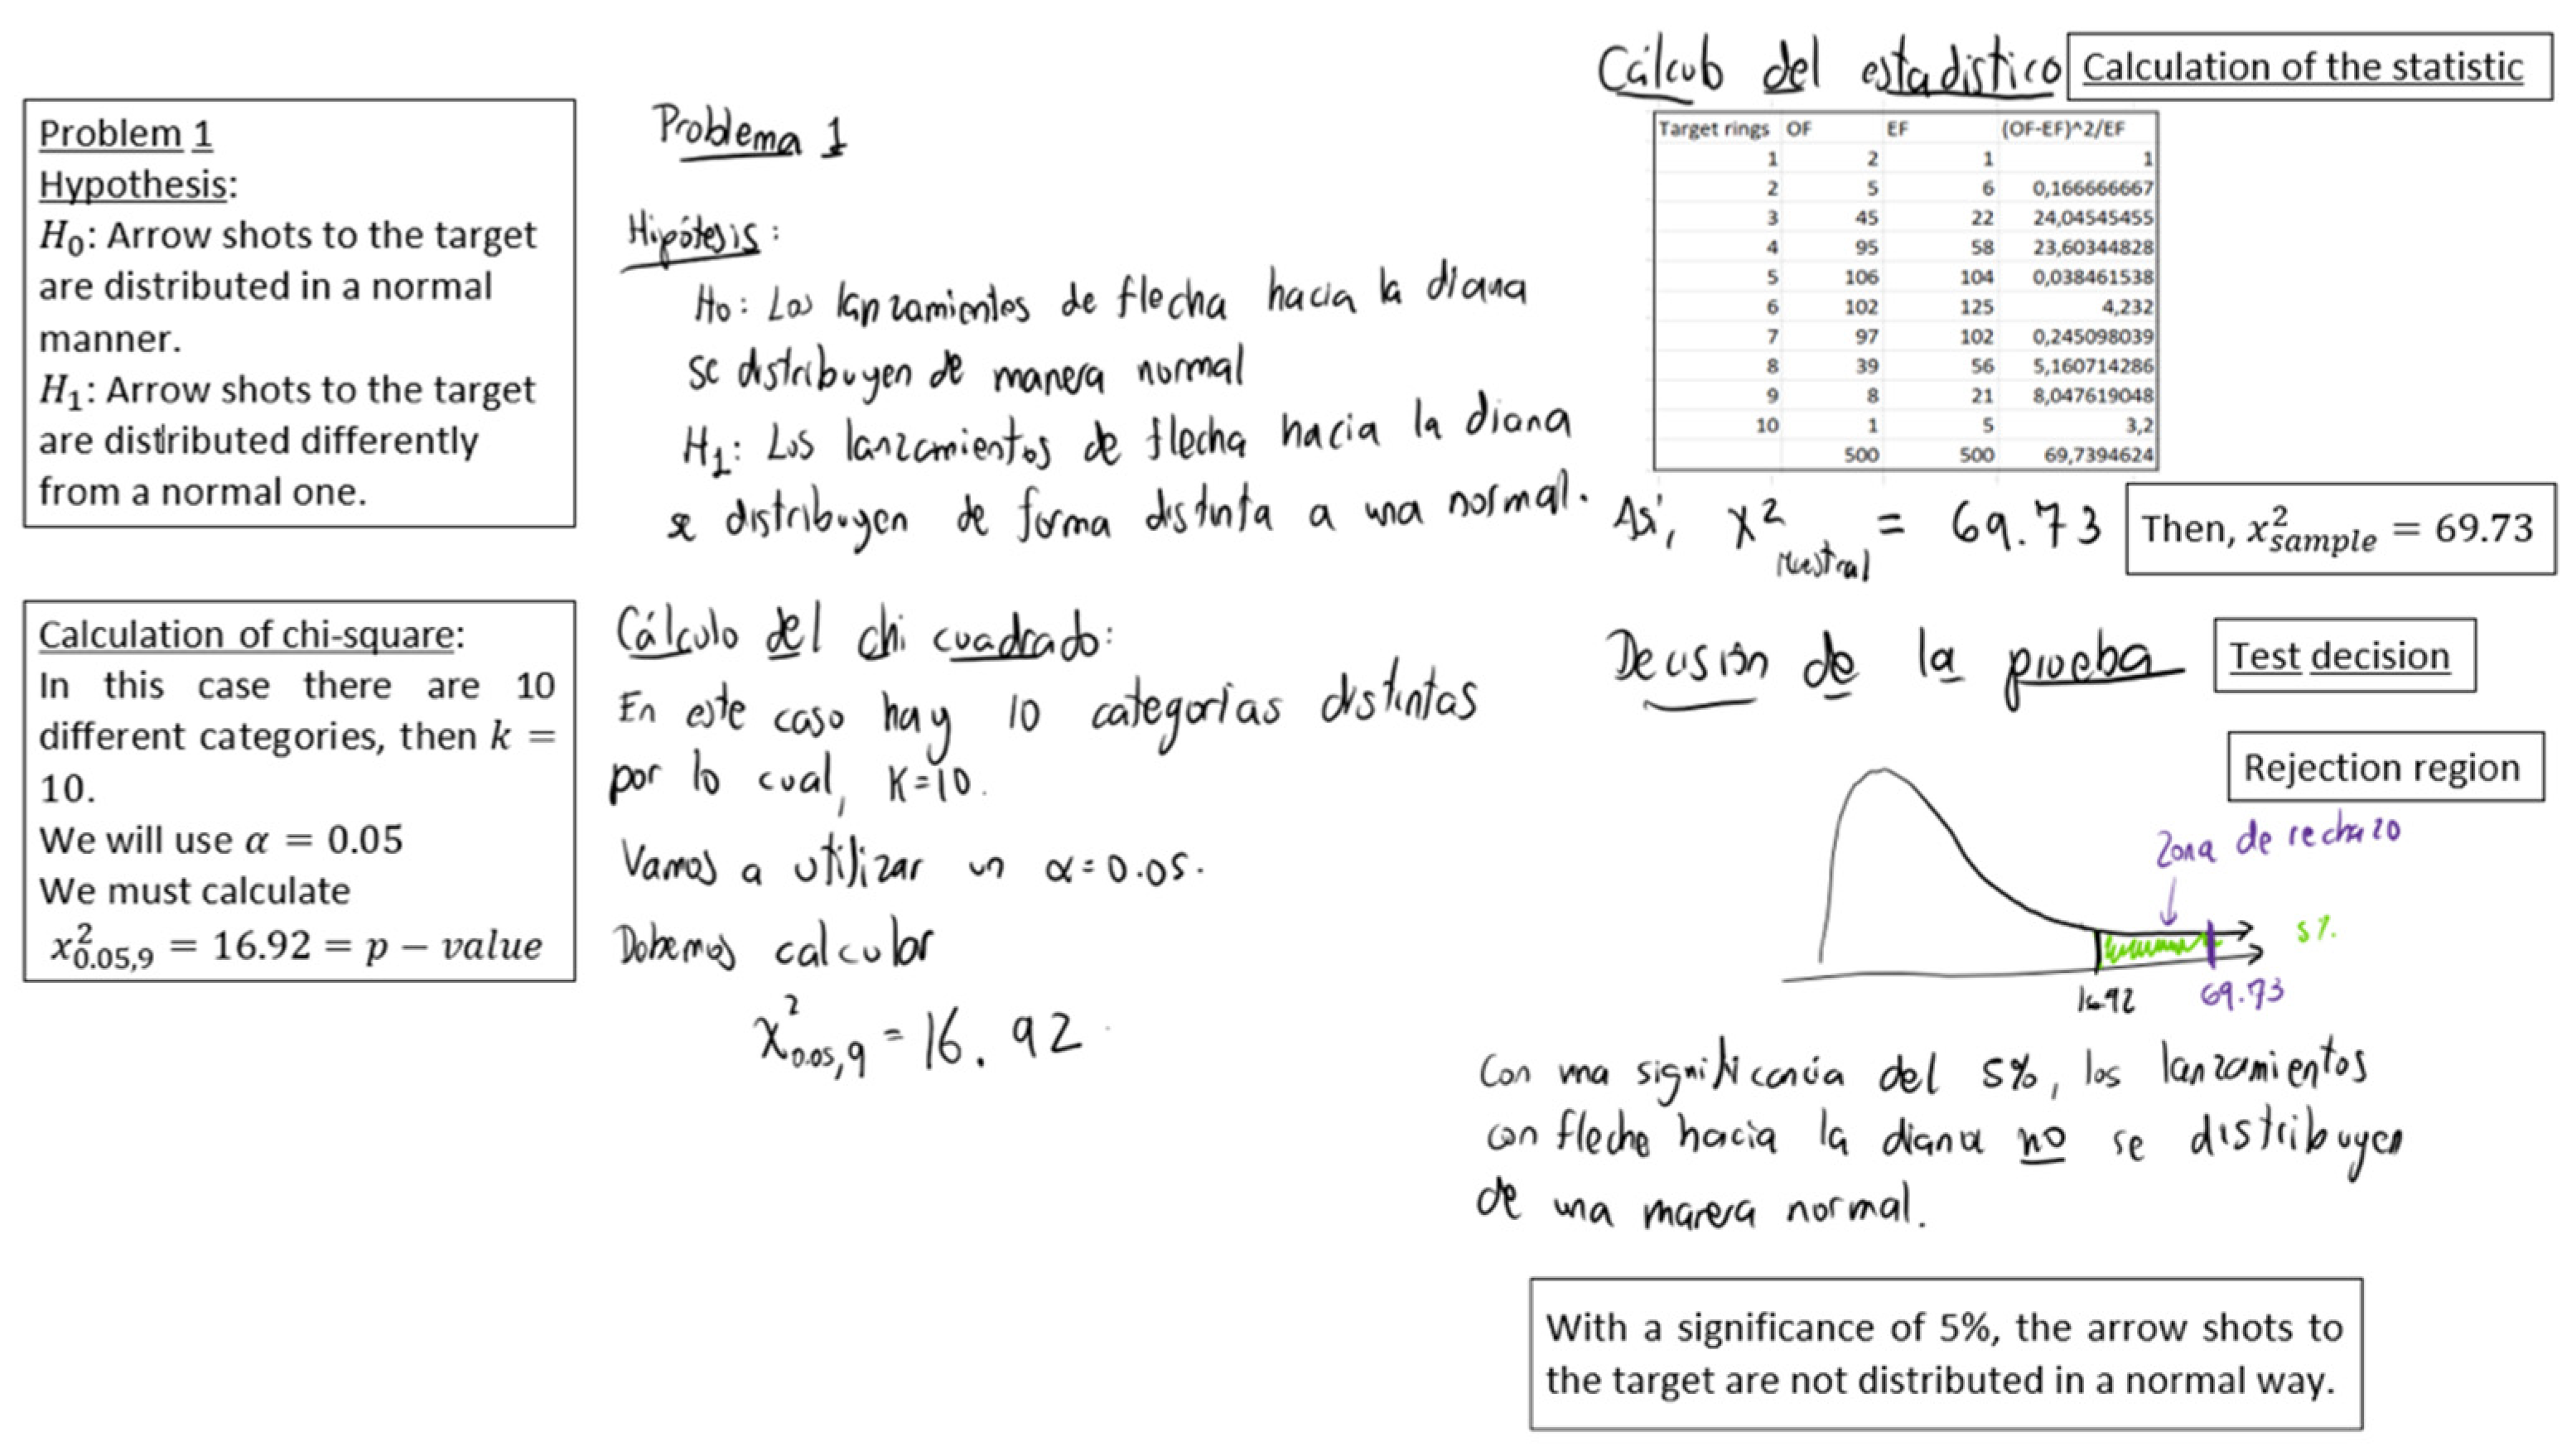 Problem 1
Hypothesis:
H₀: Arrow shots to the target
are distributed in a normal
manner.
H₁: Arrow shots to the target
are distributed differently
from a normal one.
Calculation of chi-square:
In this case there are 10
different categories, then k =
10.
We will use α = 0.05
We must calculate
x²₀.₀₅,₉ = 16.92 = p − value
Problema 1
Hipótesis:
Ho: Los lanzamientos de flecha hacia la diana
se distribuyen de manera normal
H₁: Los lanzamientos de flecha hacia la diana
se distribuyen de forma distinta a una normal.
Cálculo del chi cuadrado:
En este caso hay 10 categorías distintas
por lo cual, K=10.
Vamos a utilizar un α=0.05.
Debemos calcular
χ²₀.₀₅,₉ = 16.92
Cálculo del estadístico
Calculation of the statistic
Target rings OF EF (OF-EF)^2/EF
1 2 1 1
2 5 6 0,166666667
3 45 22 24,04545455
4 95 58 23,60344828
5 106 104 0,038461538
6 102 125 4,232
7 97 102 0,245098039
8 39 56 5,160714286
9 8 21 8,047619048
10 1 5 3,2
500 500 69,7394624
Así, χ² Muestral = 69.73
Then, x²sample = 69.73
Decisión de la prueba
Test decision
Rejection region
Zona de rechazo
5%
16.92 69.73
Con una significancia del 5%, los lanzamientos
con flecha hacia la diana no se distribuyen
de una manera normal.
With a significance of 5%, the arrow shots to
the target are not distributed in a normal way.